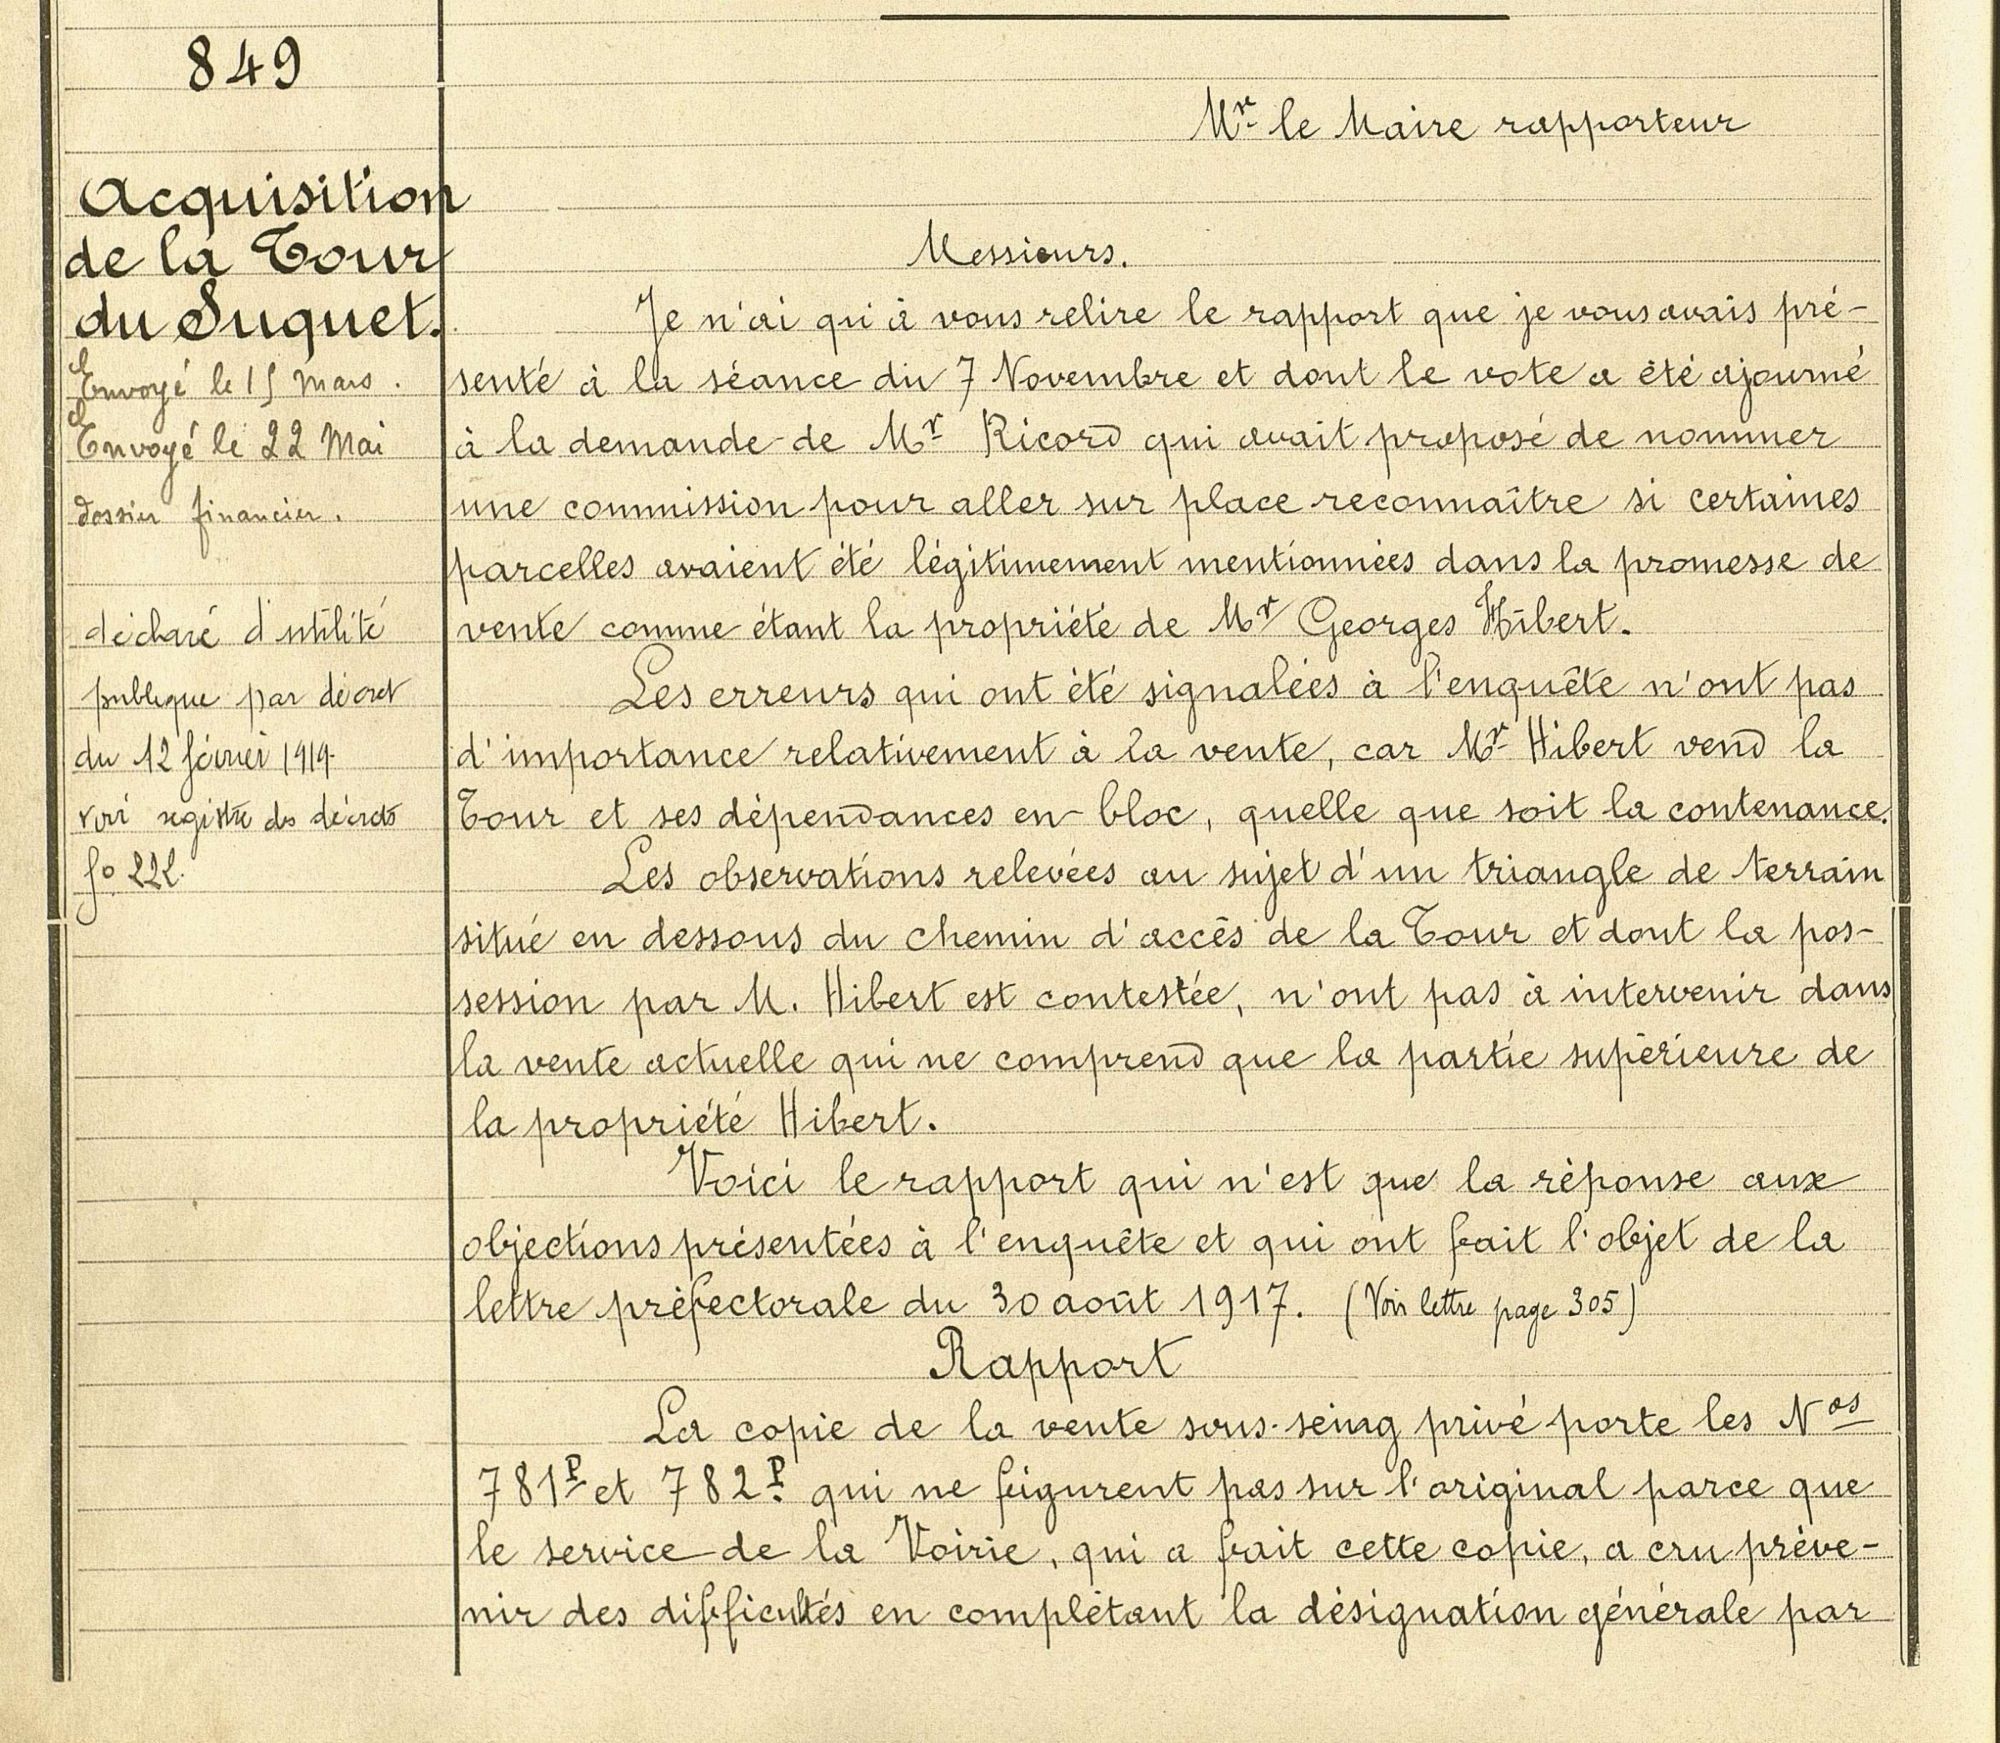 849
Acquisition
de la Tour
du Suquet.
Envoyé le 15 mars.
Envoyé le 22 Mai
dossier financier.
déclaré d'utilité
publique par décret
du 12 février 1919.
voir registre des décrets
fo 222.
Mr le Maire rapporteur
Messieurs.
Je n'ai qu'à vous relire le rapport que je vous avais pré-
senté à la séance du 7 Novembre et dont le vote a été ajourné
à la demande de Mr Ricord qui avait proposé de nommer
une commission pour aller sur place reconnaître si certaines
parcelles avaient été légitimement mentionnées dans la promesse de
vente comme étant la propriété de Mr Georges Hibert.
Les erreurs qui ont été signalées à l'enquête n'ont pas
d'importance relativement à la vente, car Mr Hibert vend la
Tour et ses dépendances en bloc, quelle que soit la contenance.
Les observations relevées au sujet d'un triangle de terrain
situé en dessous du chemin d'accès de la Tour et dont la pos-
session par M. Hibert est contestée, n'ont pas à intervenir dans
la vente actuelle qui ne comprend que la partie supérieure de
la propriété Hibert.
Voici le rapport qui n'est que la réponse aux
objections présentées à l'enquête et qui ont fait l'objet de la
lettre préfectorale du 30 août 1917. (Voir lettre page 305)
Rapport
La copie de la vente sous-seing privé porte les Nos
781P et 782P. qui ne figurent pas sur l'original parce que
le service de la Voirie, qui a fait cette copie, a cru préve-
nir des difficultés en complétant la désignation générale par